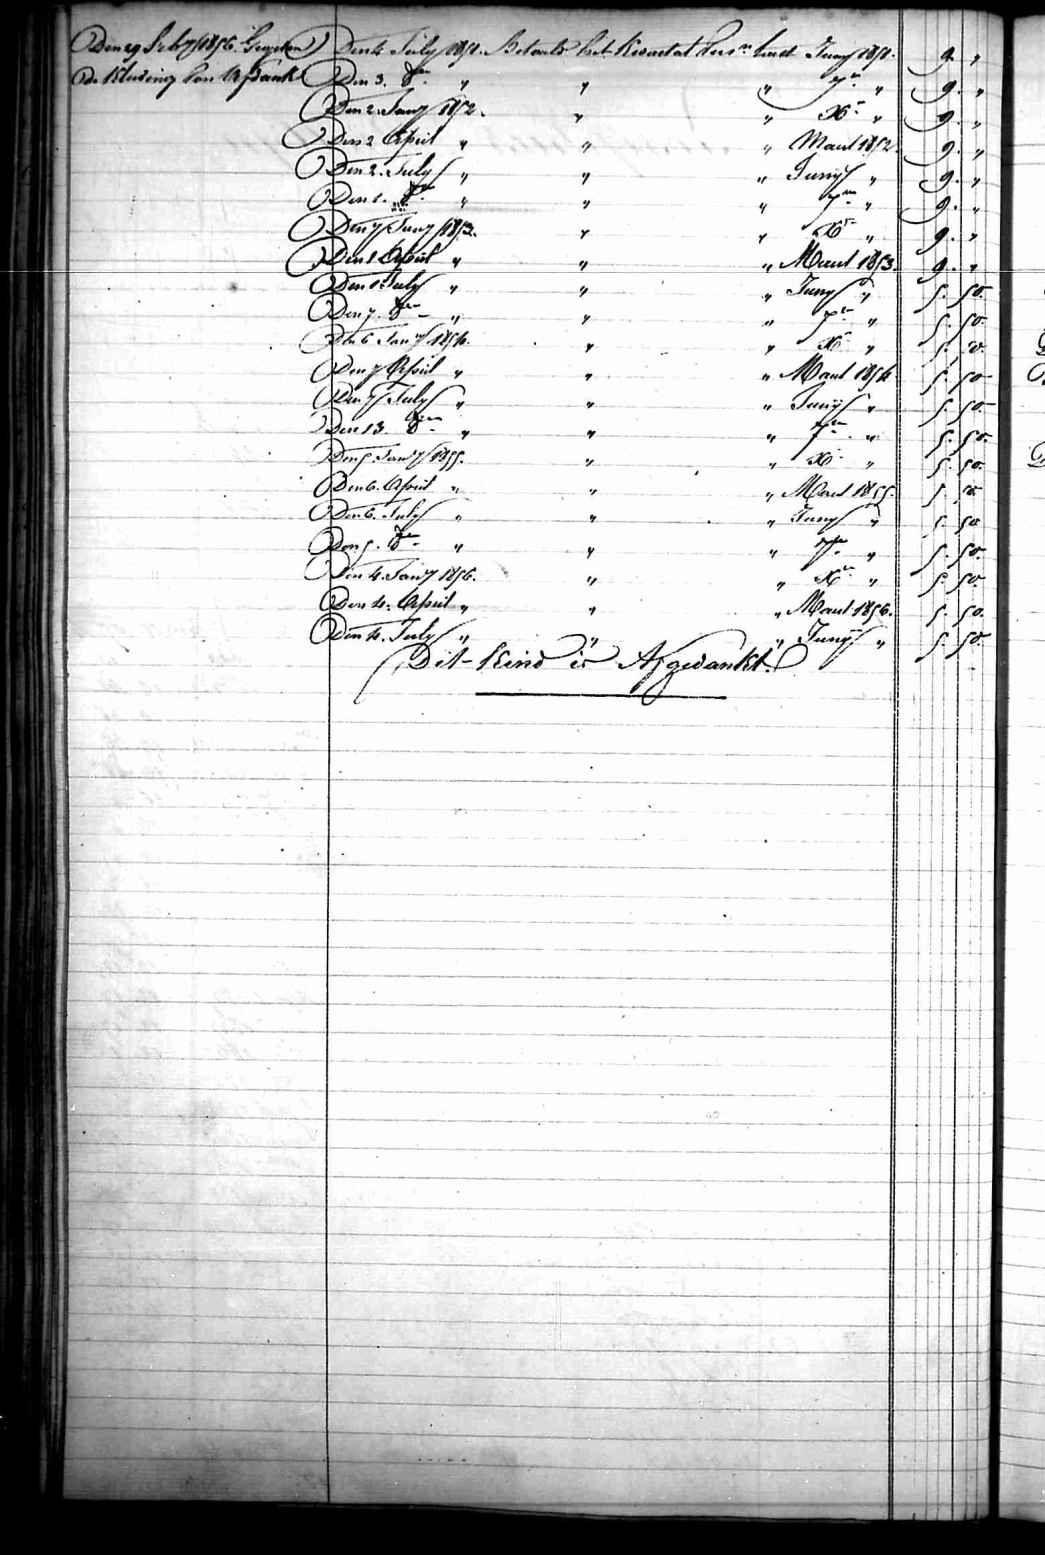 Den 29 July 1856. Gegeven
de Kleding van Afdank
Den 4 July 1851. Betaald het Kwartaal verse. Ult Juny 1851. 9. "
Den 3. 8br " " " 7br " 9. "
Den 2. Jany 1852. " " Xbr " 9. "
Den 2 April " " " Maart 1852. 9. "
Den 2. July " " " Juny " 9. "
Den 1. 8br " " " 7br " 9. "
Den 7 Jany 1853. " " Xbr " 9. "
Den 1 April " " " Maart 1853. 9. "
Den 1 July " " " Juny " 5. 50.
Den 7. 8br " " " 7br " 5. 50.
Den 6 Jany 1854. " " Xbr " 5. 50.
Den 7 April " " " Maart 1854 5. 50
Den 7 July " " " Juny " 5. 50.
Den 13. 8br " " " 7br " 5. 50.
Den 5 Jany 1855. " " Xbr " 5. 50.
Den 6. April " " " Maart 1855. 5. 50.
Den 6. July " " " Juny " 5. 50
Den 5. 8br " " " 7br " 5. 50.
Den 4. Jany 1856. " " Xbr " 5. 50.
Den 4. April " " " Maart 1856. 5. 50.
Den 4. July " " " Juny " 5. 50.
Dit Kind is Afgedankt.